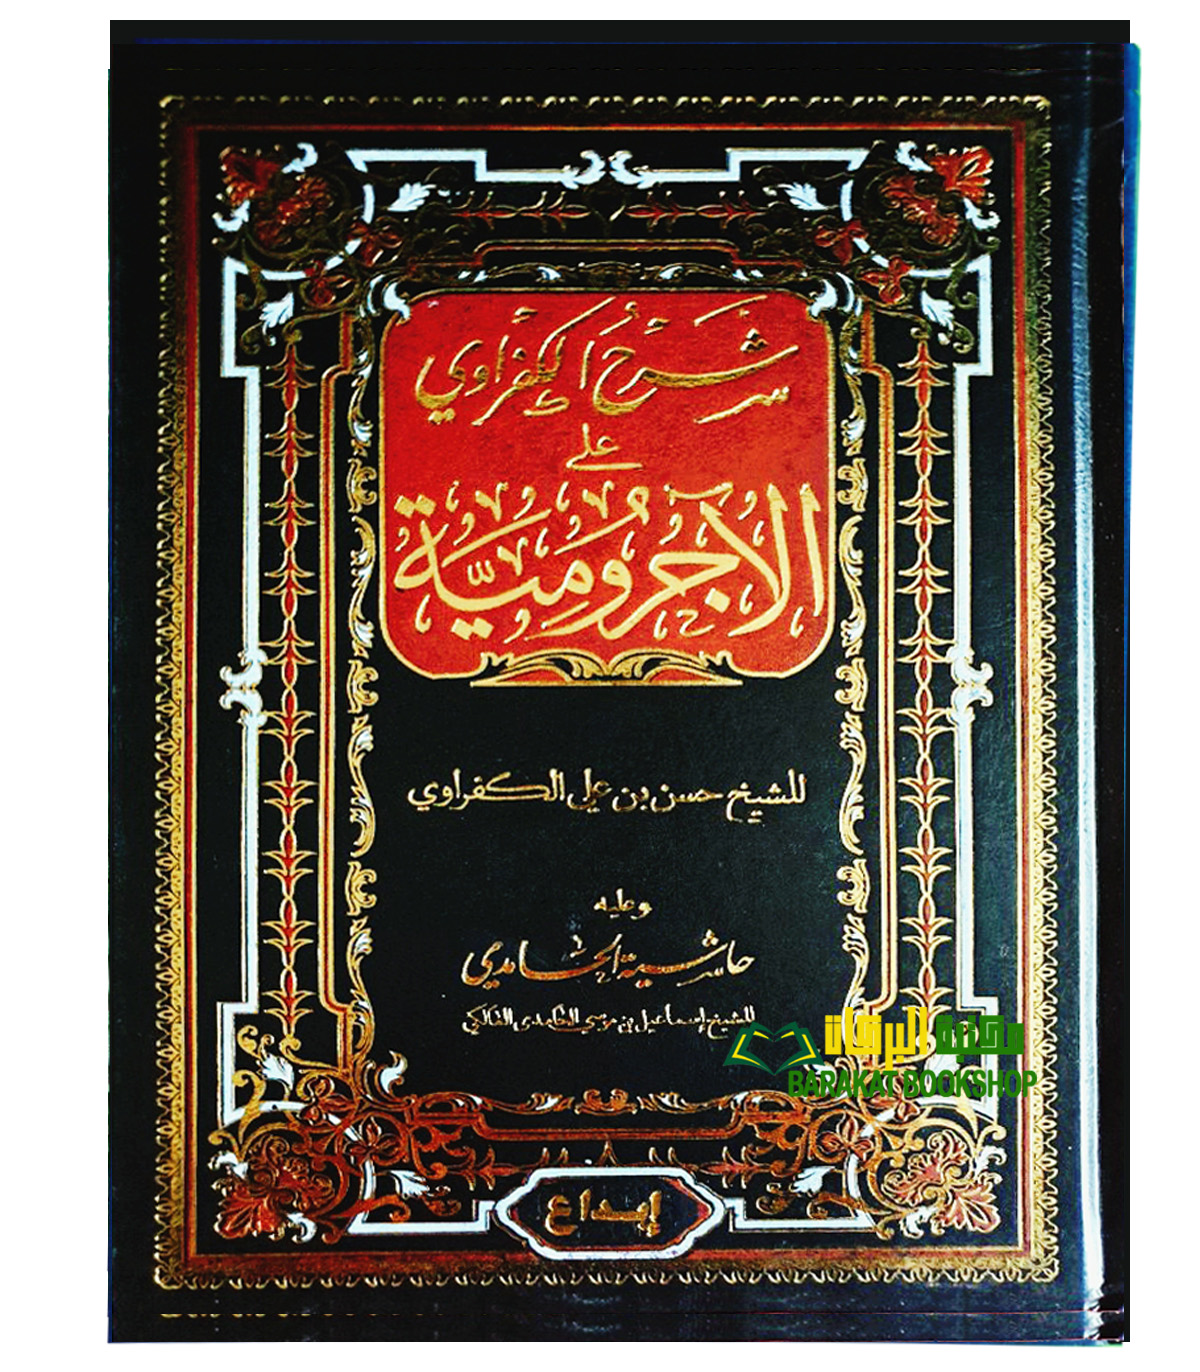 شَرْحُ الكفراوي
على
الآجُرُومِيَّة
للشيخ حسن بن علي الكفراوي
وعليه
حاشية الحامدي
للشيخ إسماعيل بن موسى الحامدي المالكي
مكتبة البركات
BARAKAT BOOKSHOP
إبداع